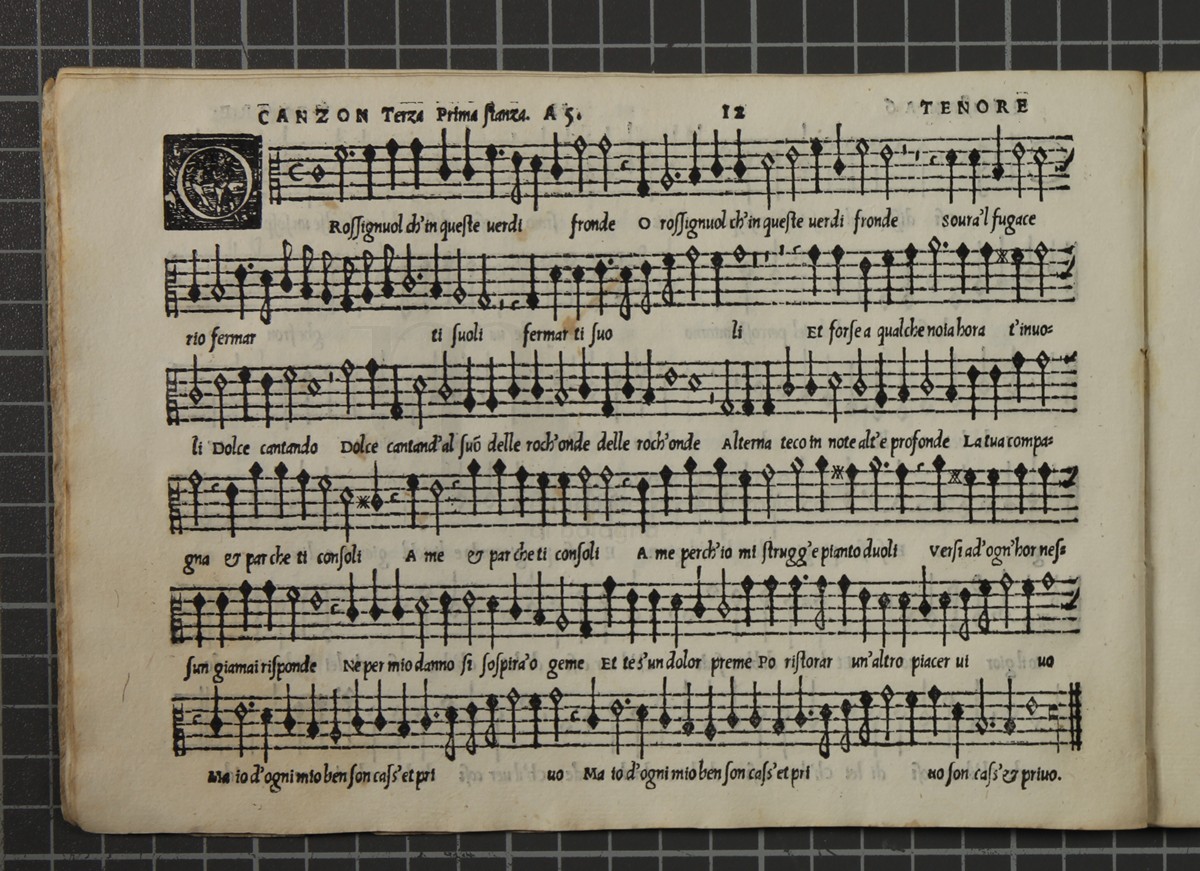 CANZON Terza Prima stanza. A 5. 12 TENORE
O Rossignuol ch'in queste uerdi fronde O rossignuol ch'in queste uerdi fronde soura'l fugace
rio fermar ti suoli fermar ti suo li Et forse a qualche noia hora t'inuo=
li Dolce cantando Dolce cantand'al suõ delle roch'onde delle roch'onde Alterna teco in note alt'e profonde La tua compa=
gna & par che ti consoli A me & par che ti consoli A me perch'io mi strugg'e pianto duoli Versi ad'ogn'hor nes=
sun giamai risponde Ne per mio danno si sospira'o geme Et te s'un dolor preme Po ristorar un'altro piacer ui uo
Ma io d'ogni mio ben son cass'et pri uo Ma io d'ogni mio ben son cass'et pri uo son cass'& priuo.